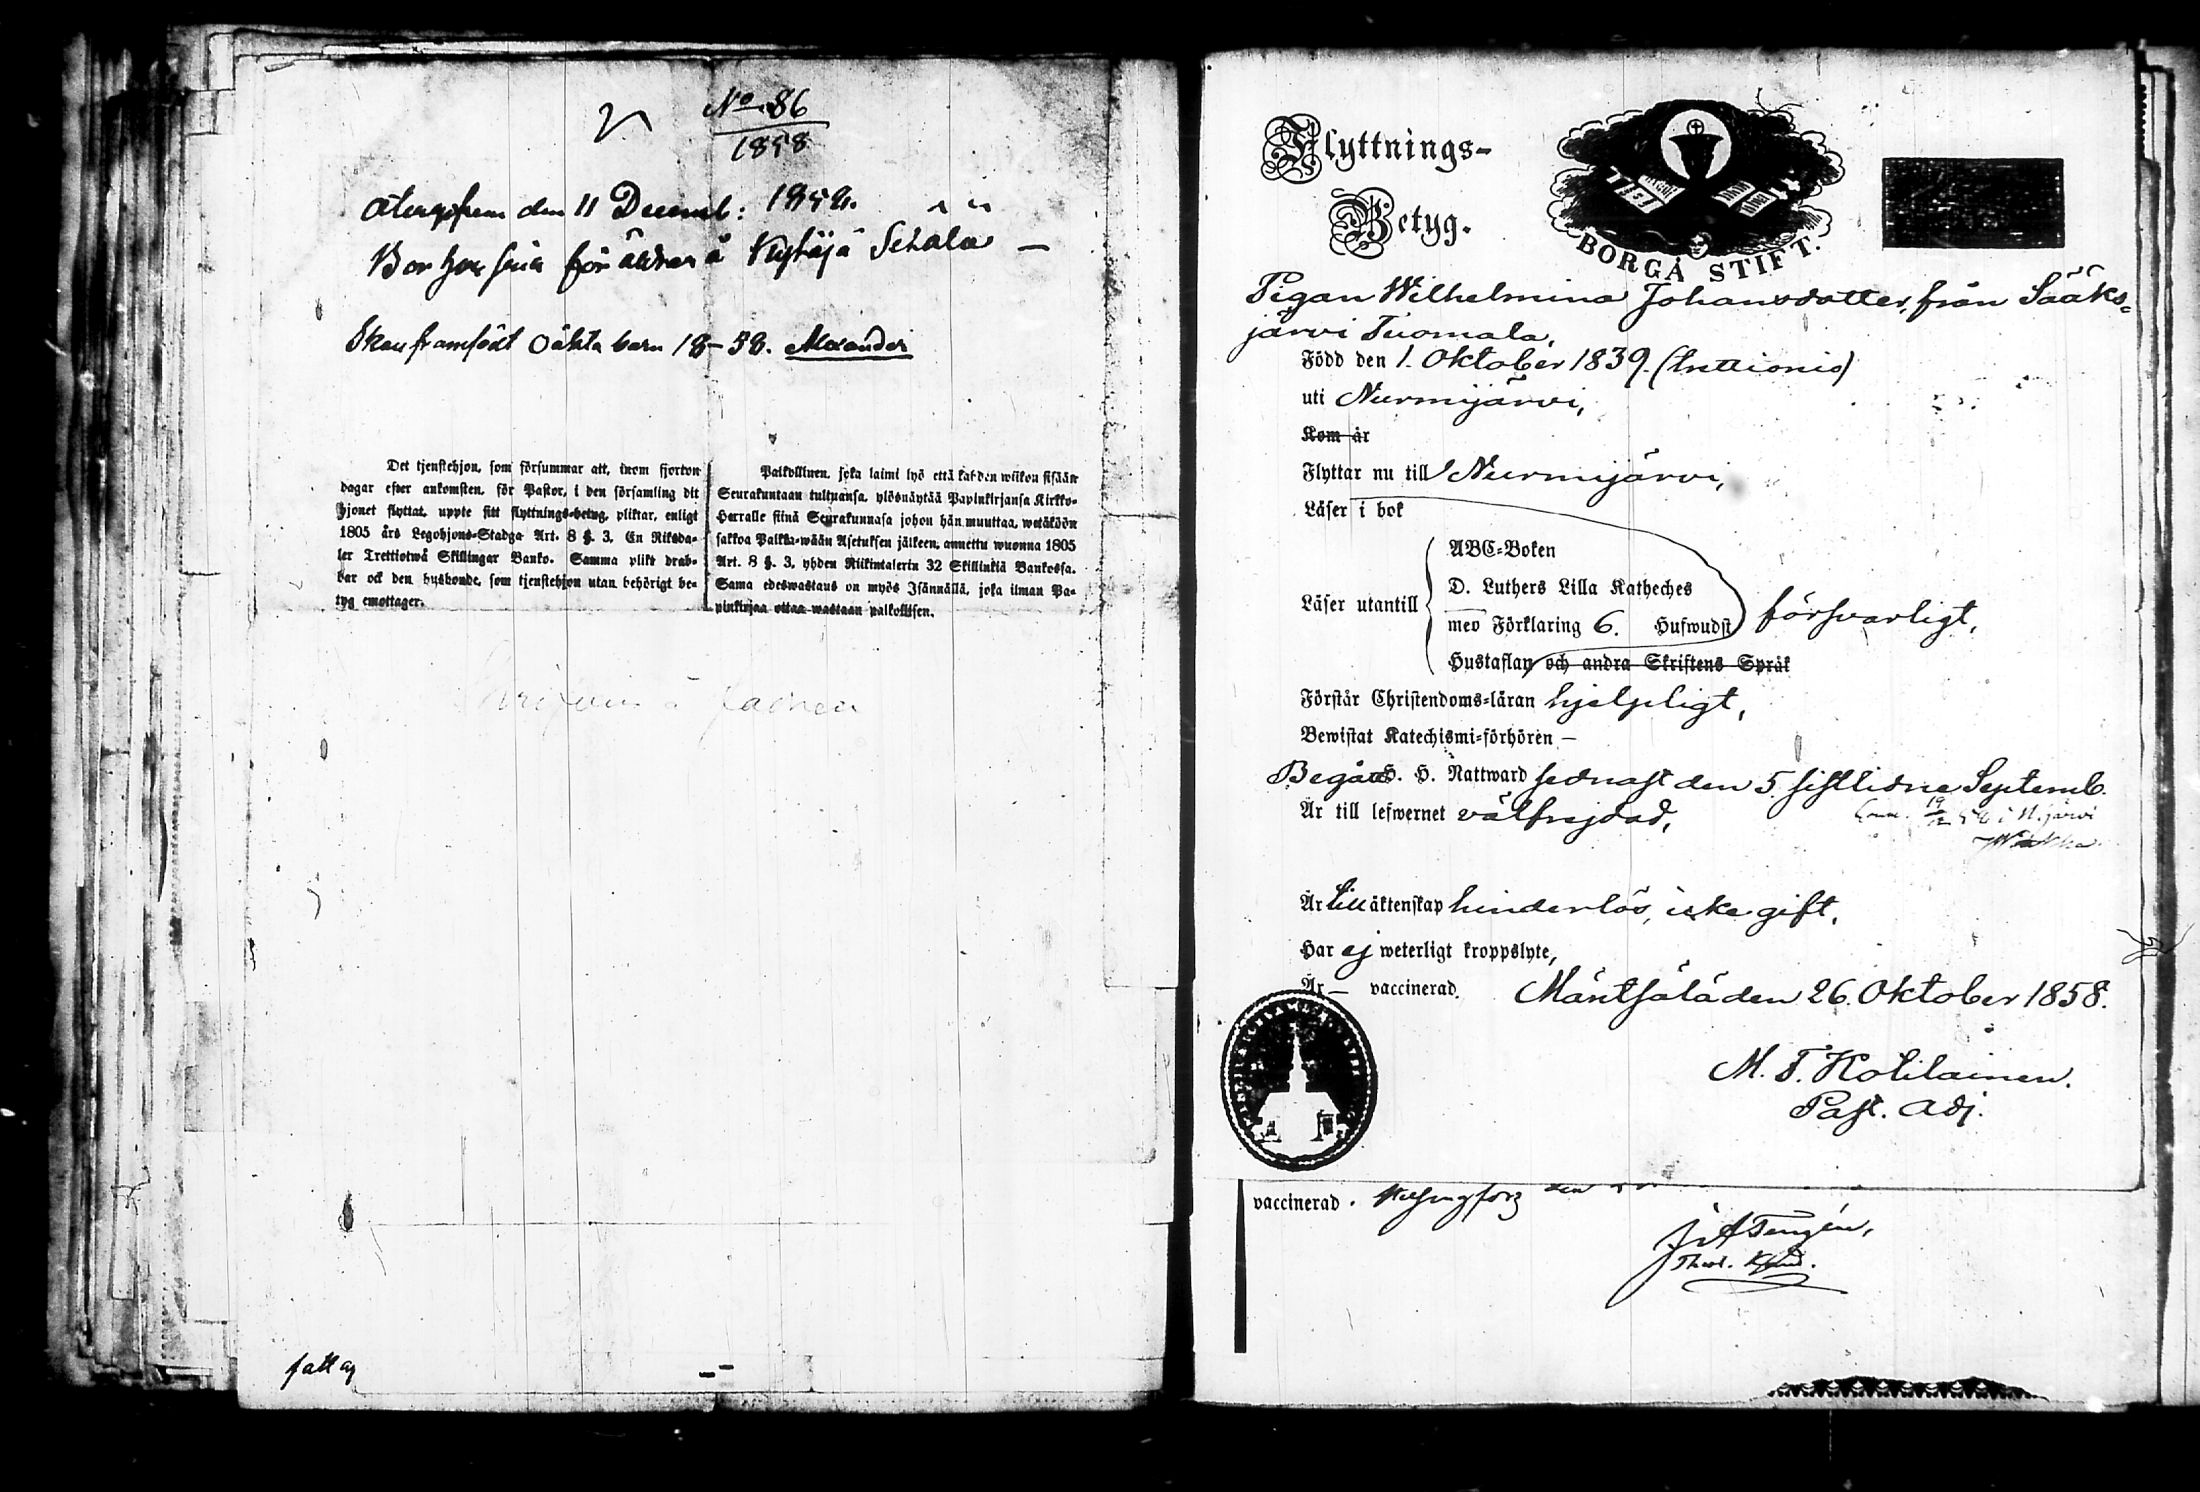 No 86
1858
den 11 Decemb: 1858.
Bor hos sina föräldrar å Kytäjä
framfödt oäkta barn 18–58. Alexander
Det tjenstehjon, som försummar att, inom fjorton
dagar efter ankomsten, för Pastor, i den församling dit
hjonet flyttat, uppte sitt flyttnings-betyg, pliktar, enligt
1805 års Legohjons-Stadga Art. 8 §. 3, En Riksda-
ler Trettiotwå Skillingar Banko. Samma plikt drab-
bar ock den husbonde, som tjenstehjon utan behörigt be-
tyg emottager.
Palkollinen, joka laimi lyö että kahden wiikon sisään
Seurakuntaan tultuansa, ylösnäytää Papinkirjansa Kirkko-
Herralle siinä Seurakunnasa johon hän muuttaa, wetäköön
sakkoa Palkka-wään Asetuksen jälkeen, annettu wuonna 1805
Art. 8 §. 3, yhden Riikintalerin 32 Skillinkiä Bankossa.
Sama edeswastaus on myös Isännällä, joka ilman Pa-
pinkirjaa ottaa wastaan palkollisen.
Flyttnings-
Betyg.
BORGÅ STIFT.
Pigan Wilhelmina Johansdotter, från Sääks-
järvi Tuomala,
Född den 1. Oktober 1839.
uti Nurmijärvi,
Kom år
Flyttar nu till Nurmijärvi,
Läser i bok
ABC-Boken
D. Luthers Lilla Katheches
Läser utantill
med Förklaring 6. Hufwudst försvarligt,
Hustaflan och andra Skriftens Språk
Förstår Christendoms-läran hjelpligt,
Bewistat Katechismi-förhören –
Begått H. H. Nattward sednast den 5 sistlidne Septemb.
Är till lefwernet välfrejdad,
19
12 58 i N.järvi
Är till äktenskap hinderlös, icke gift,
Har ej weterligt kroppslyte,
Är – vaccinerad. Mäntsälä den 26. Oktober 1858.
M. T. Kolilainen.
Past. Adj.
vaccinerad. Helsingfors den